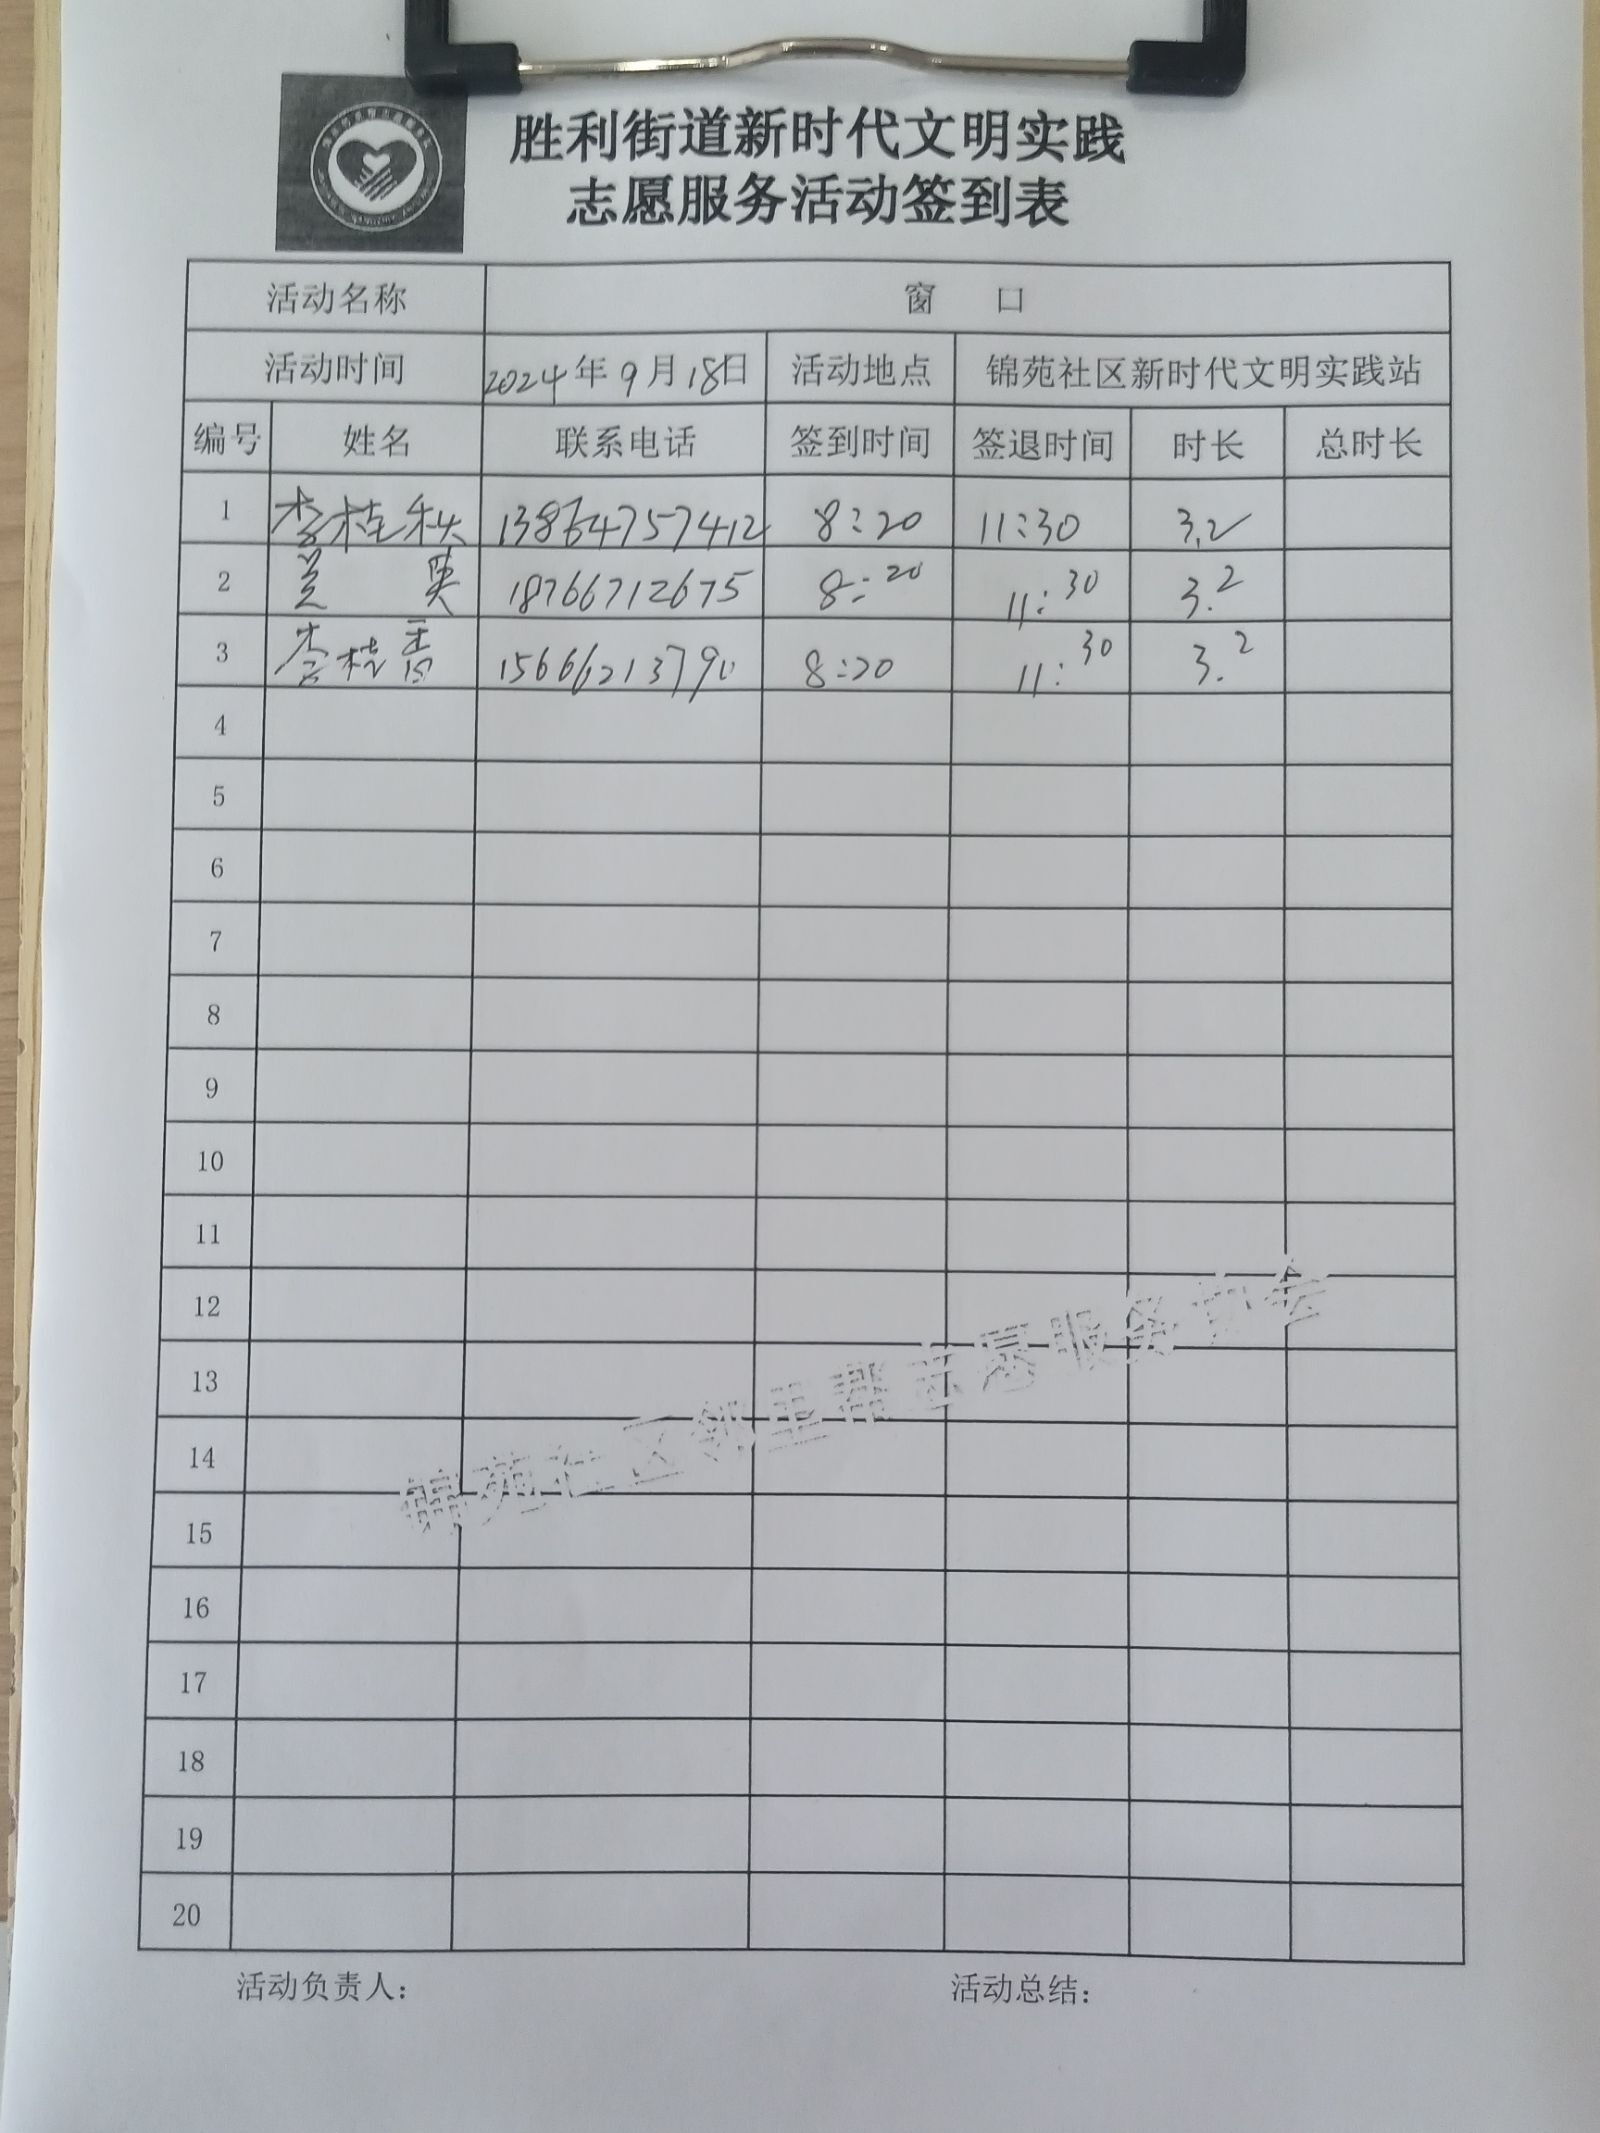 胜利街道新时代文明实践
志愿服务活动签到表
活动名称 窗 口
活动时间 2024年9月18日 活动地点 锦苑社区新时代文明实践站
编号 姓名 联系电话 签到时间 签退时间 时长 总时长
1 李桂秋 13864757412 8:20 11:30 3.2
2 18766712675 8:20 11:30 3.2
3 李桂香 15666213790 8:20 11:30 3.2
4
5
6
7
8
9
10
11
12
13
14
15
16
17
18
19
20
锦苑社区邻里帮志愿服务协会
活动负责人： 活动总结：